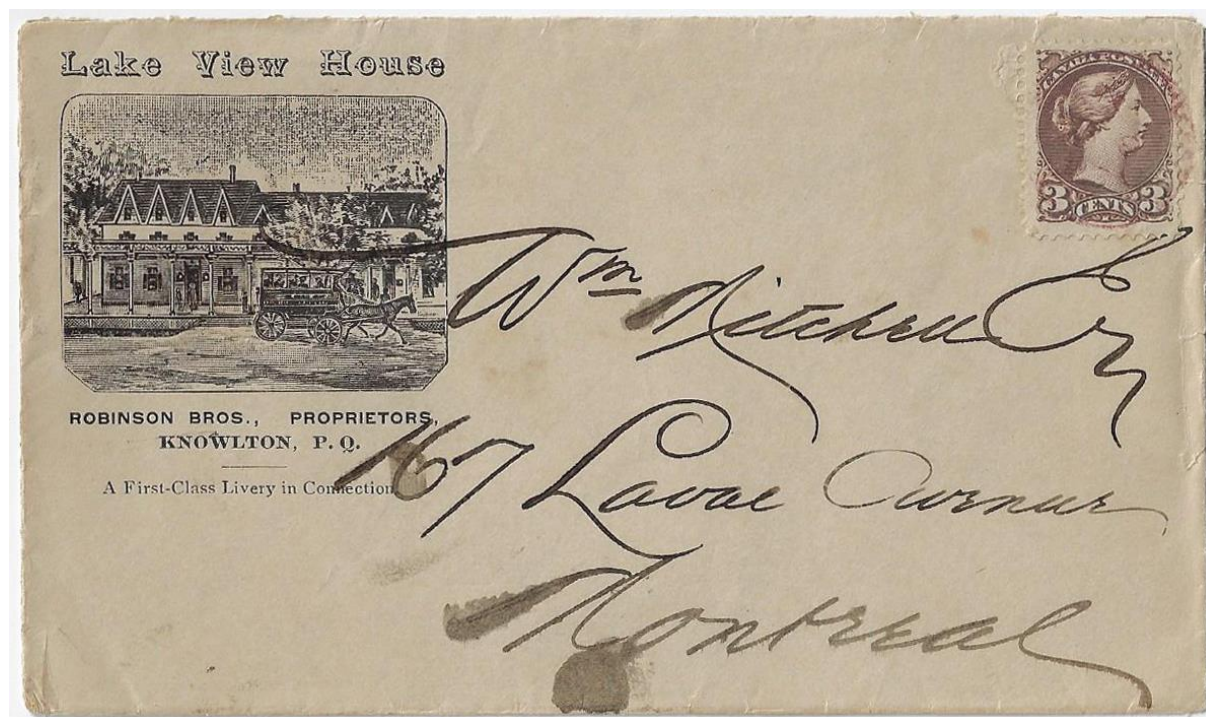 Lake View House
ROBINSON BROS., PROPRIETORS,
KNOWLTON, P. Q.
A First-Class Livery in Connection
CANADA POSTAGE
3 CENTS 3
Wm Mitchell Esq
167 Laval Avenue
Montreal